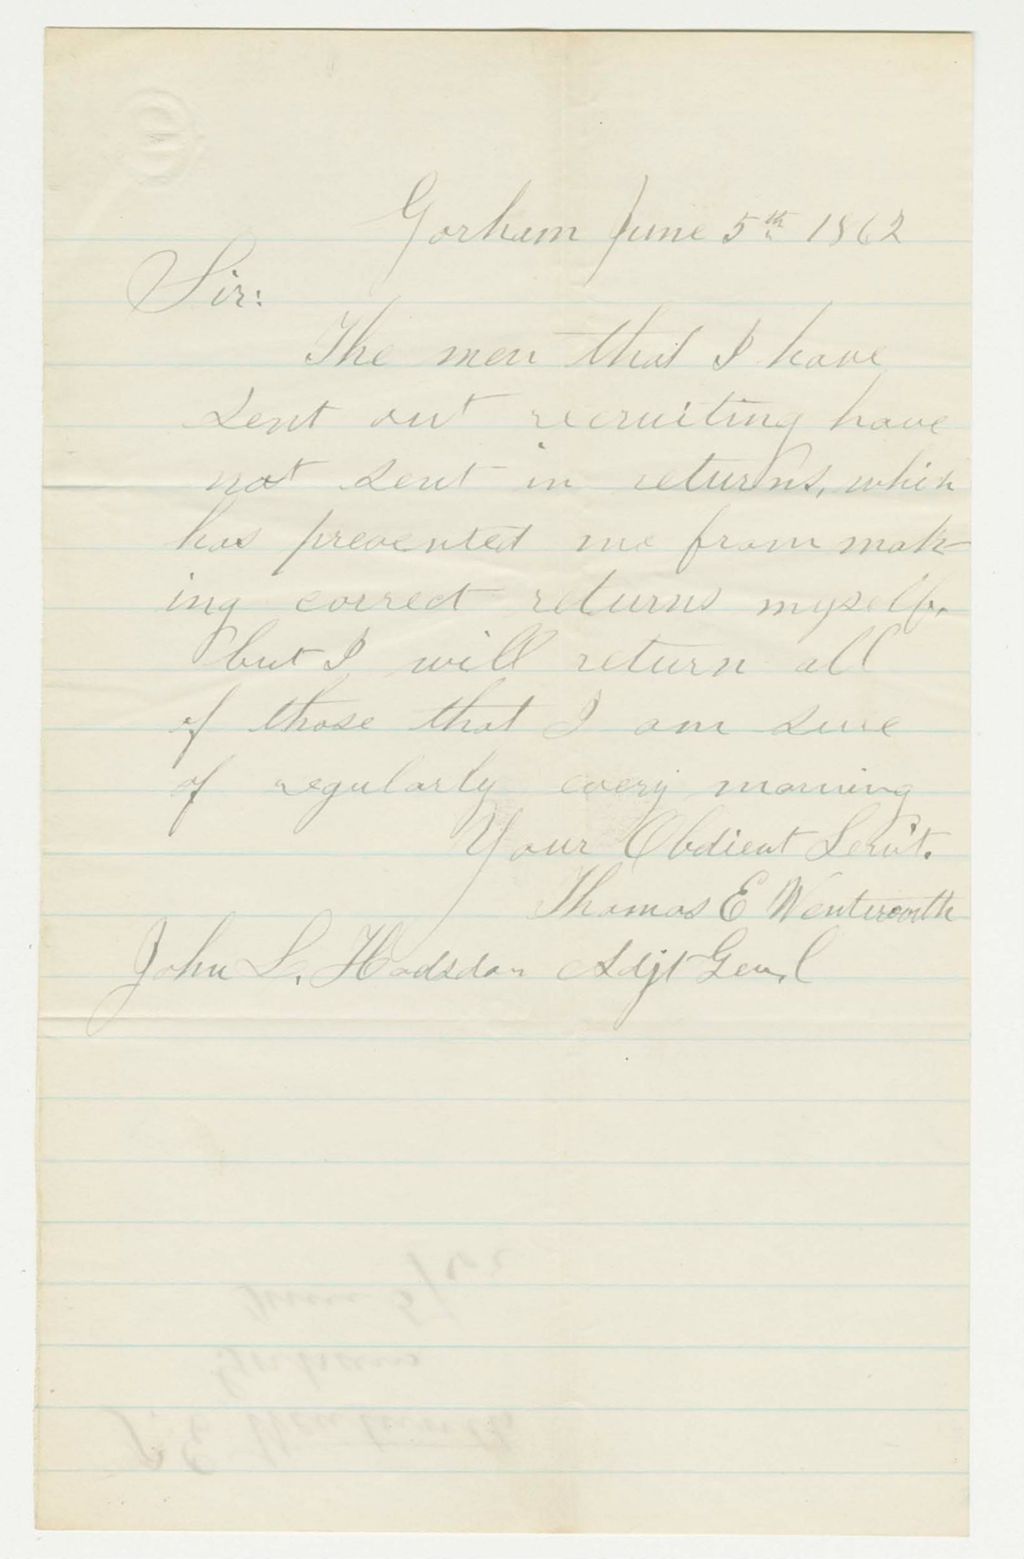 Gorham June 5th 1862
Sir:
The men that I have
sent out recruiting have
not sent in returns, which
has prevented me from mak-
ing correct returns myself.
but I will return all
of those that I am sure
of regularly every morning
Your Obdient Serv't.
Thomas E Wentworth
John L. Hodsdon Adjt Gen,l
June 5/62
Gorham
T. E. Wentworth